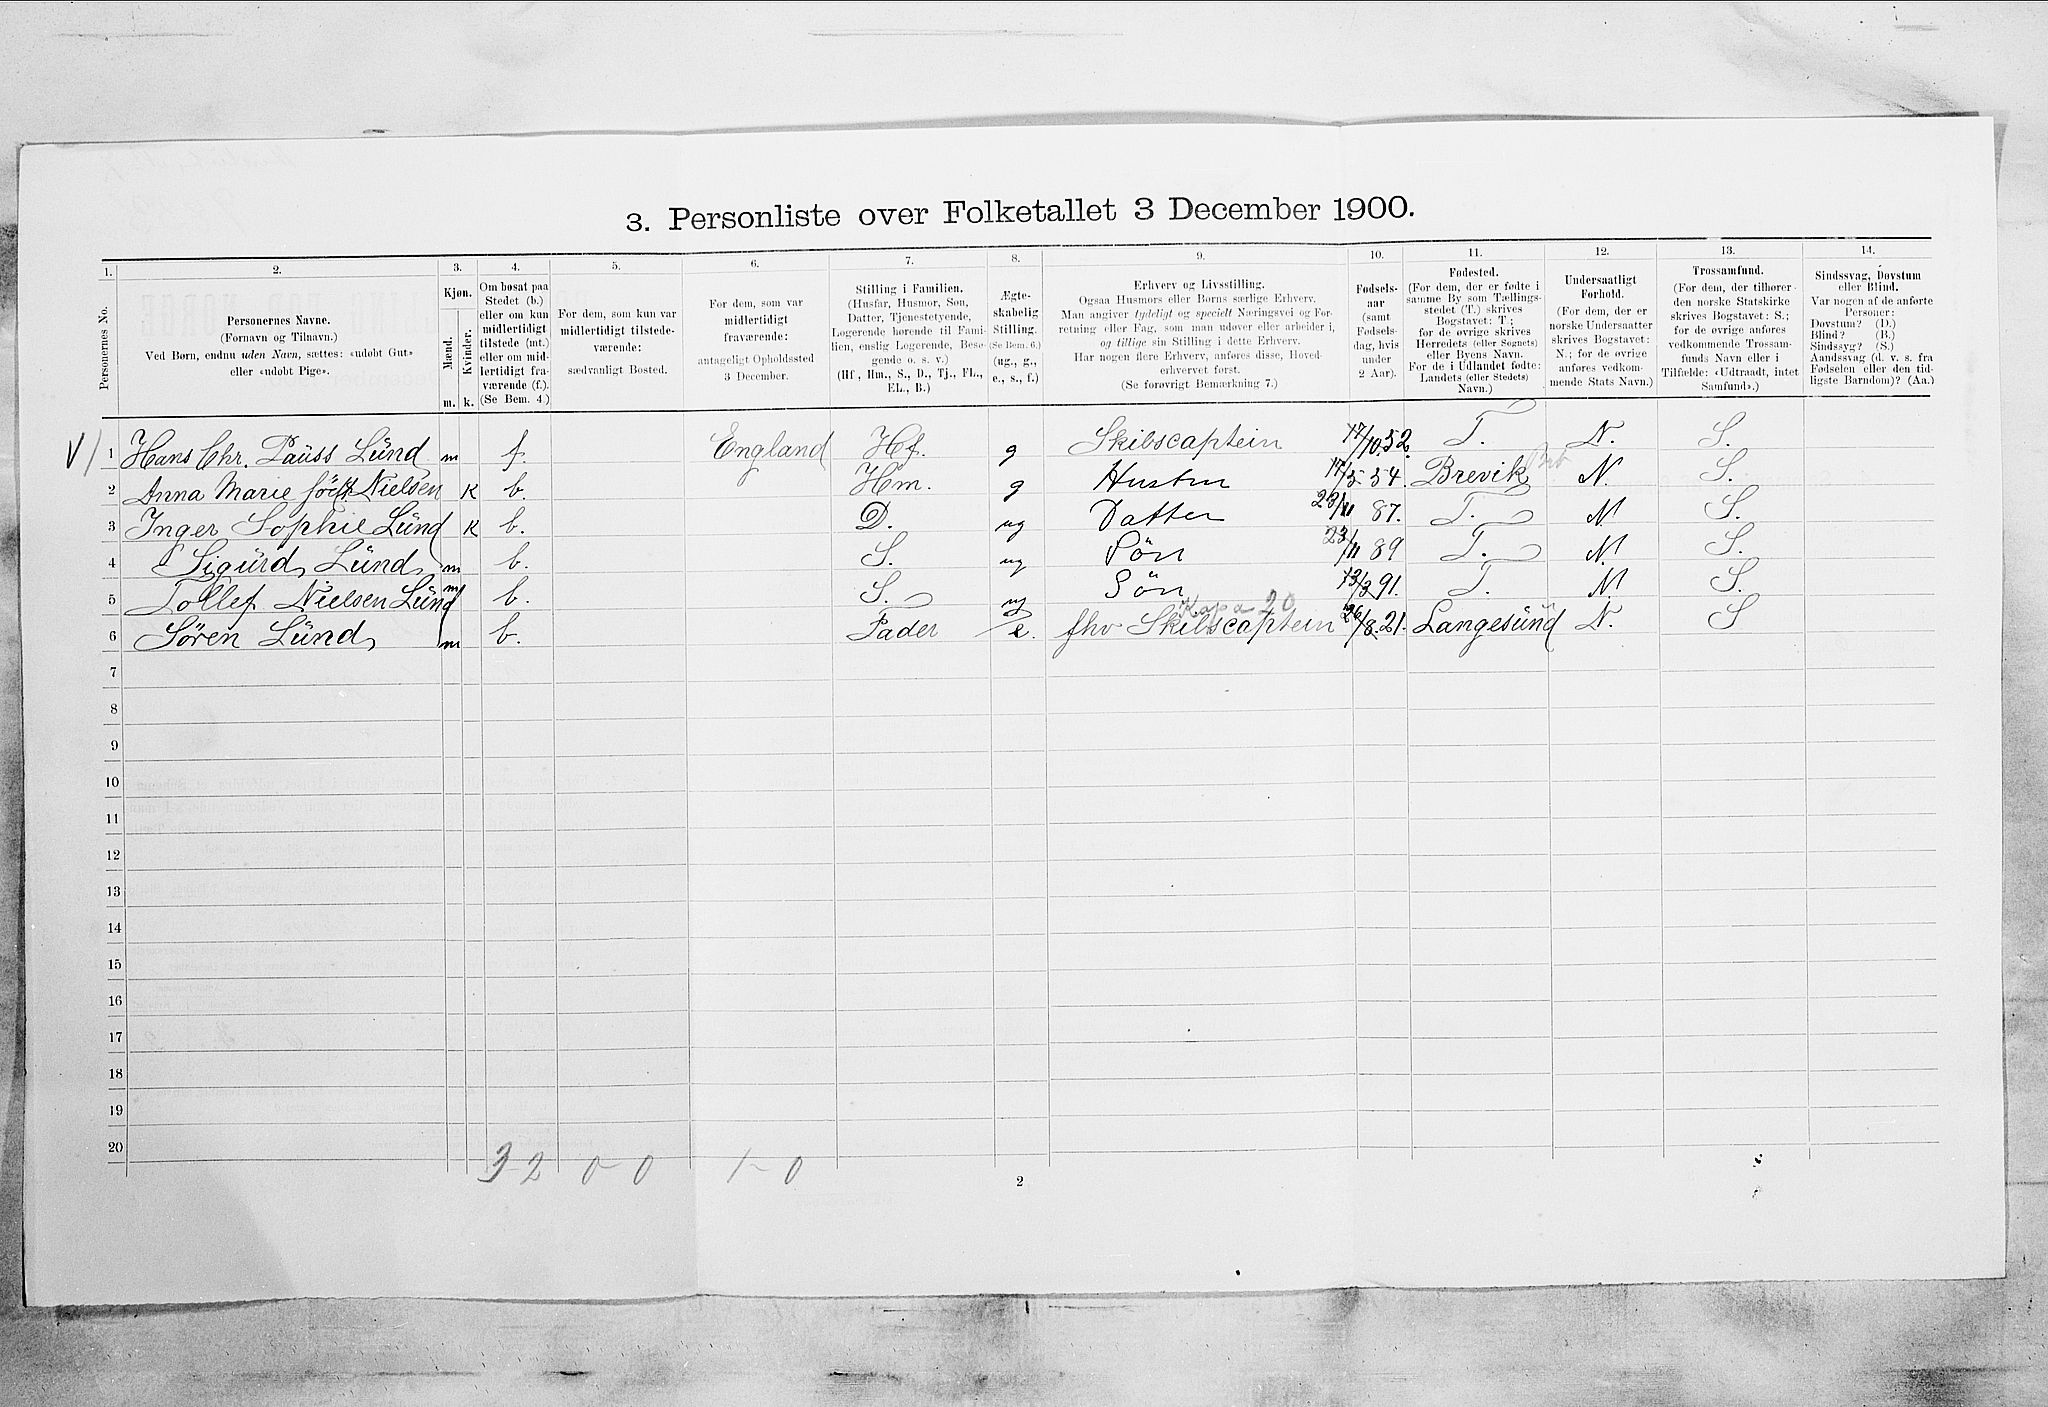 3. Personliste over Folketallet 3 December 1900.
1. 2. 3. 4. 5. 6. 7. 8. 9. 10. 11. 12. 13. 14.
Personernes No.
Personernes Navne.
(Fornavn og Tilnavn.)
Ved Børn, endnu uden Navn, sættes: «udøbt Gut»
eller «udøbt Pige».
Kjøn.
Mænd.
Kvinder.
m. k.
Om bosat paa
Stedet (b.)
eller om kun
midlertidigt
tilstede (mt.)
eller om mid-
lertidigt fra-
værende (f.).
(Se Bem. 4.)
For dem, som kun var
midlertidigt tilstede-
værende:
sædvanligt Bosted.
For dem, som var
midlertidigt
fraværende:
antageligt Opholdssted
3 December.
Stilling i Familien.
(Husfar, Husmor, Søn,
Datter, Tjenestetyende,
Logerende hørende til Fami-
lien, enslig Logerende, Besø-
gende o. s. v.)
(Hf., Hm., S., D., Tj., FL.,
EL., B.)
Ægte-
skabelig
Stilling.
(Se Bem. 6.)
(ug., g.,
e., s., f.)
Erhverv og Livsstilling.
Ogsaa Husmors eller Børns særlige Erhverv.
Man angiver tydeligt og specielt Næringsvei og For-
retning eller Fag, som man udøver eller arbeider i,
og tillige sin Stilling i dette Erhverv.
Har nogen flere Erhverv, anføres disse, Hoved-
erhvervet først.
(Se forøvrigt Bemærkning 7.)
Fødsels-
aar
(samt
Fødsels-
dag, hvis
under
2 Aar).
Fødested.
(For dem, der er fødte i
samme By som Tællings-
stedet (T.) skrives
Bogstavet: T.;
for de øvrige skrives
Herredets (eller Sognets)
eller Byens Navn.
For de i Udlandet fødte:
Landets (eller Stedets)
Navn.)
Undersaatligt
Forhold.
(For dem, der er
norske Undersaatter
skrives Bogstavet:
N.; for de øvrige
anføres vedkom-
mende Stats Navn.)
Trossamfund.
(For dem, der tilhører
den norske Statskirke
skrives Bogstavet: S.;
for de øvrige anføres
vedkommende Trossam-
funds Navn eller i
Tilfælde: «Udtraadt, intet
Samfund».)
Sindssvag, Døvstum
eller Blind.
Var nogen af de anførte
Personer:
Døvstum? (D.)
Blind? (B.)
Sindssyg? (S.)
Aandssvag (d. v. s. fra
Fødselen eller den tid-
ligste Barndom)? (Aa.)
V/ 1 Hans Chr. Pauss Lund m f. England Hf. g Skibscaptein 17/10.52. T. N. S.
2 Anna Marie født Nielsen k b. Hm. g Hustru 17/5 54. Brevik N. S.
3 Inger Sophie Lund k b. D. ug Datter 23/11 87. T. N S.
4 Sigurd Lund m b. S. ug Søn 23/11 89 T. N. S.
5 Tollef Nielsen Lund m b. S. ug Søn 13/3 91. T. N. S.
20
6 Søren Lund m b. Fader e. fhv Skibscaptein 26/8.21. Langesund N. S
7
8
9
10
11
12
13
14
15
16
17
18
19
20
3 2 0-0 1-0
2